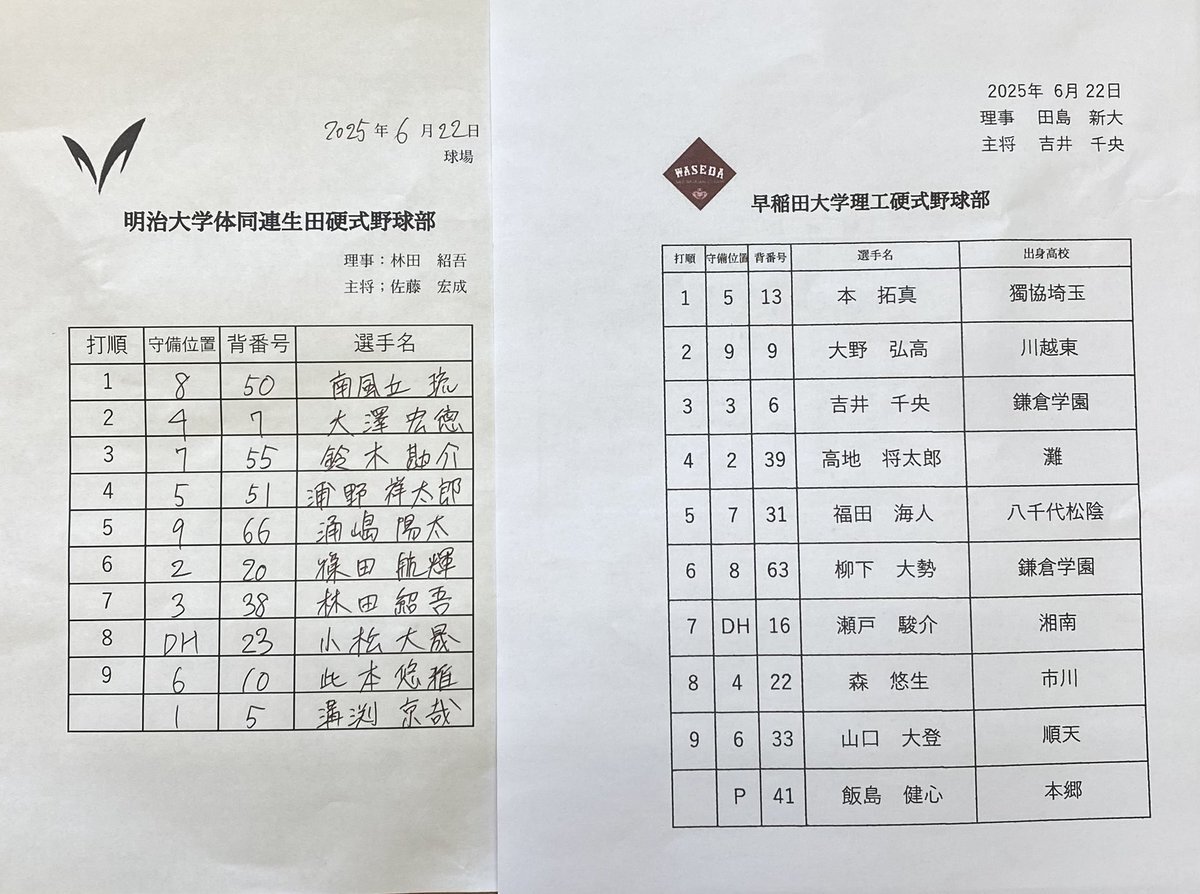 2025年 6月 22日
球場
明治大学体同連生田硬式野球部
理事：林田 紹吾
主将；佐藤 宏成
打順 守備位置 背番号 選手名
1 8 50 南風立 琉
2 4 7 大澤 宏徳
3 7 55 鈴木 勘介
4 5 51 浦野 祥太郎
5 9 66 涌嶋 陽太
6 2 20 篠田 航輝
7 3 38 林田 紹吾
8 DH 23 小松 大晟
9 6 10 此本 悠雅
1 5 溝渕 京哉
2025年 6月 22日
理事 田島 新大
主将 吉井 千央
WASEDA
早稲田大学理工硬式野球部
打順 守備位置 背番号 選手名 出身高校
1 5 13 本 拓真 獨協埼玉
2 9 9 大野 弘高 川越東
3 3 6 吉井 千央 鎌倉学園
4 2 39 高地 将太郎 灘
5 7 31 福田 海人 八千代松陰
6 8 63 柳下 大勢 鎌倉学園
7 DH 16 瀬戸 駿介 湘南
8 4 22 森 悠生 市川
9 6 33 山口 大登 順天
P 41 飯島 健心 本郷